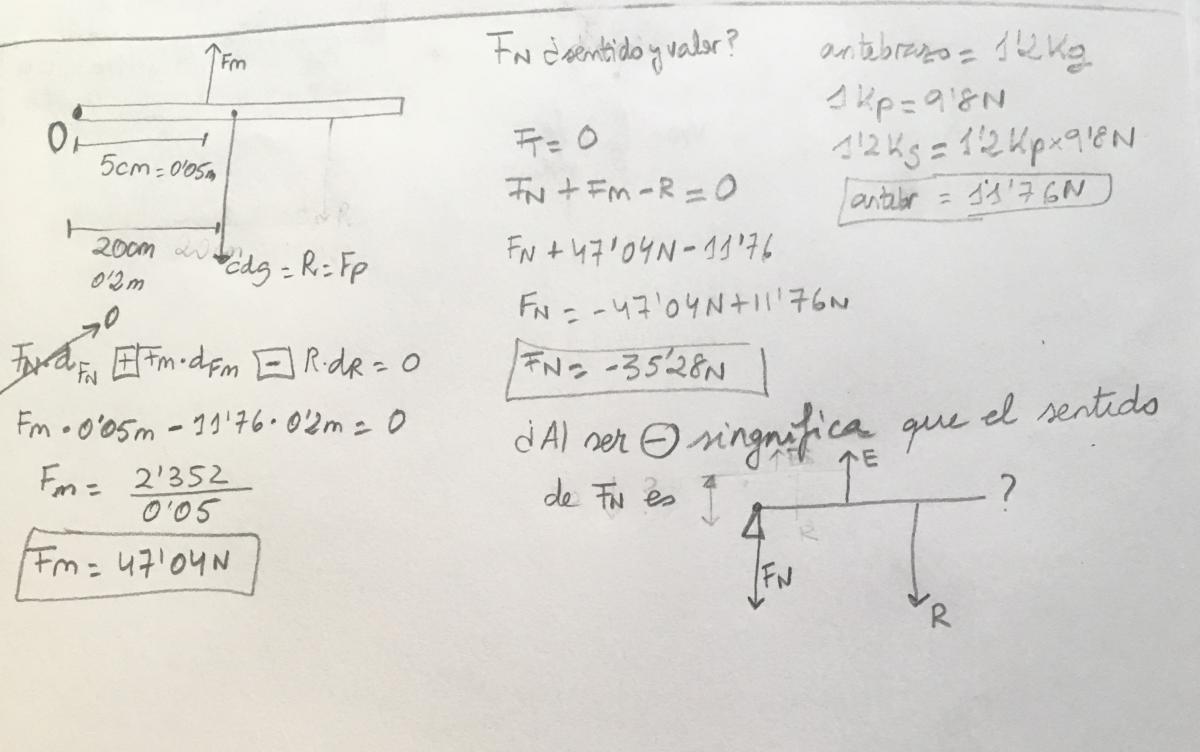 Fm
O
5cm = 0'05m
20cm
0'2m
cdg = R = Fp
O
FN·dFN + Fm·dFm - R·dR = 0
Fm · 0'05m - 11'76 · 0'2m = 0
Fm = 2'352
0'05
Fm = 47'04N
FN ¿sentido y valor?
FT = 0
FN + Fm - R = 0
FN + 47'04N - 11'76
FN = -47'04N + 11'76N
FN = -35'28N
antebrazo = 1'2 Kg
1 Kp = 9'8N
1'2Kg = 1'2Kp x 9'8N
antebr = 11'76N
¿Al ser ⊖ singnifica que el sentido
de FN es
E
?
FN
R